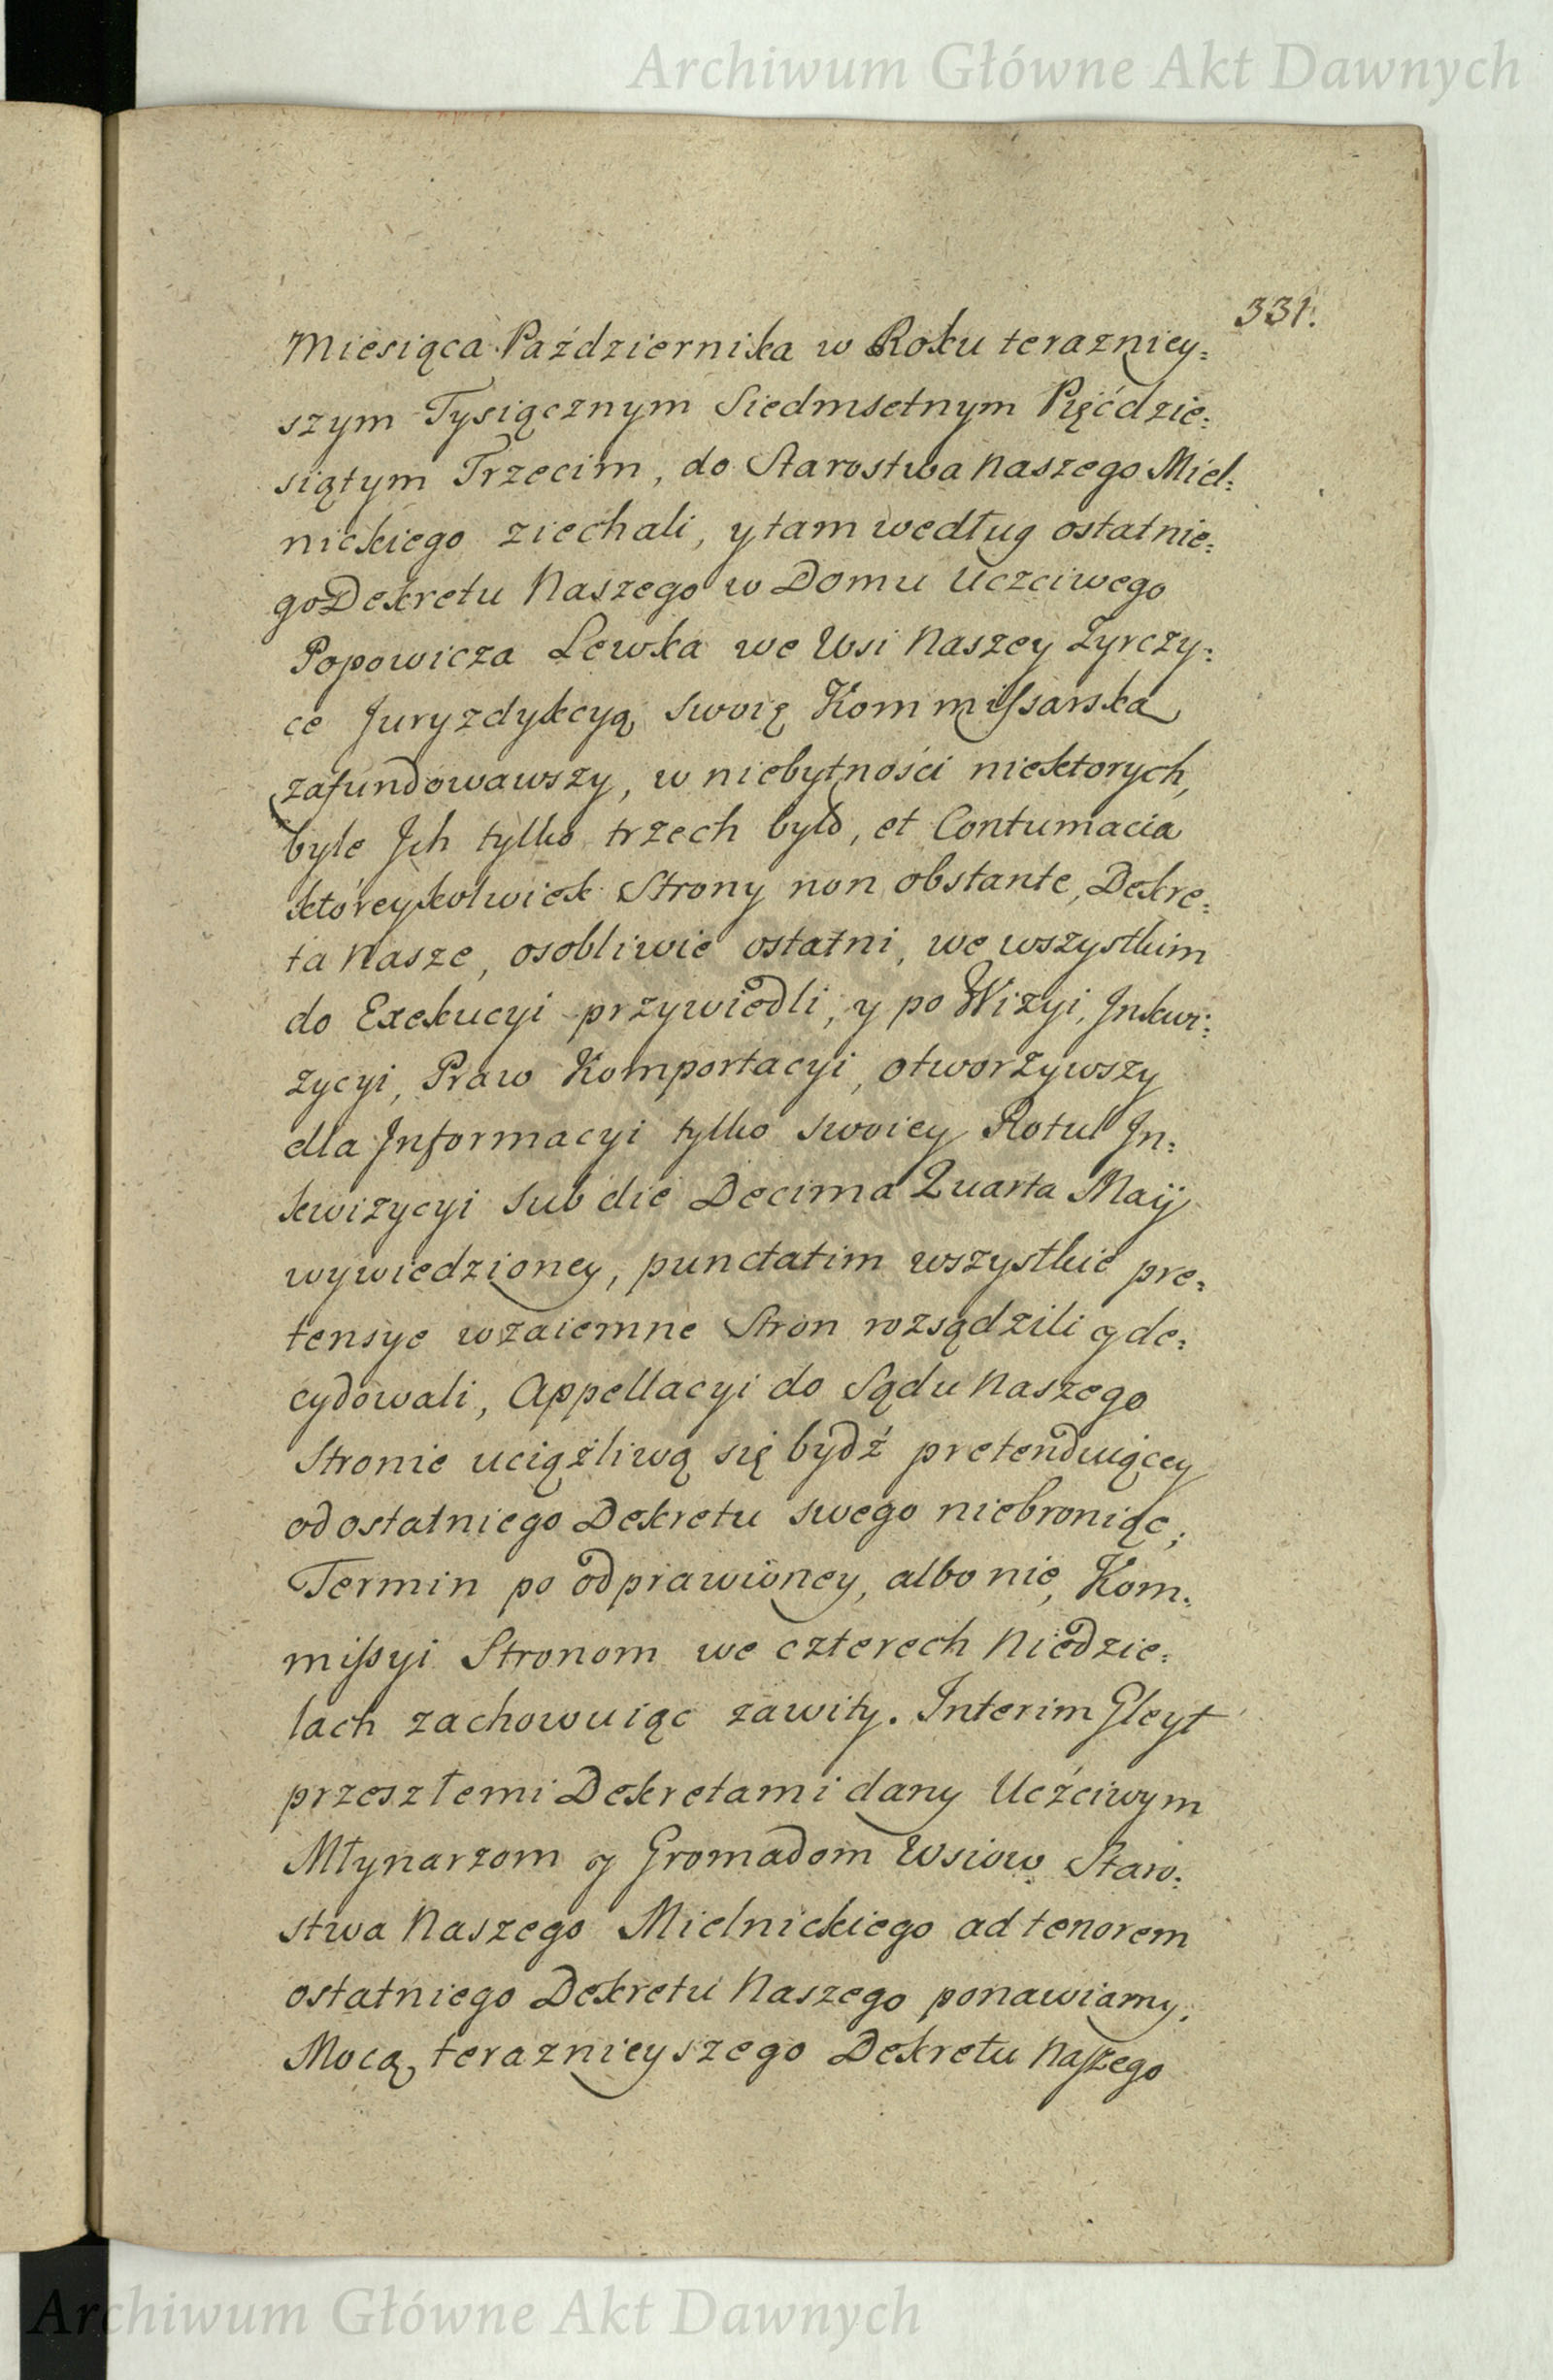 Archiwum Główne Akt Dawnych
331.
Miesiąca Października w Roku teraźniey=
szym Tysiącznym Siedmsetnym Pięćdzie=
siątym Trzecim, do Starostwa Naszego Miel=
nickiego ziechali, y tam według ostatnie=
go Dekretu Naszego w Domu Uczciwego
Popowicza Lewka we Wsi Naszey Zyrczy=
ce Juryzdykcyą swoię Kommissarska
zafundowawszy, w niebytności niektorych,
byle Jch tylko trzech było, et Contumacia
któreykolwiek Strony non obstante, Dekre=
ta Nasze, osobliwie ostatni, we wszystkim
do Exekucyi przywiedli, y po Wizyi, Jnkwi=
zycyi, Praw Komportacyi, otworzywszy
dla Jnformacyi tylko swoiey Rotul Jn=
kwizycyi sub die Decima Quarta Maij
wywiedzioney, punctatim wszystkie pre=
tensye wzaiemne Stron rozsądzili y de=
cydowali, Appellacyi do Sądu Naszego
Stronie uciążliwą się bydź pretenduiącey
od ostatniego Dekretu swego niebroniąc;
Termin po odprawioney, albo nie, Kom=
missyi Stronom we czterech Niedzie=
lach zachowuiąc zawity. Interim Gleyt
przeszłemi Dekretami dany Uczciwym
Młynarzom y Gromadom Wsiow Staro=
stwa Naszego Mielnickiego ad tenorem
ostatniego Dekretu Naszego ponawiamy.
Mocą teraznieyszego Dekretu Naszego
Archiwum Główne Akt Dawnych